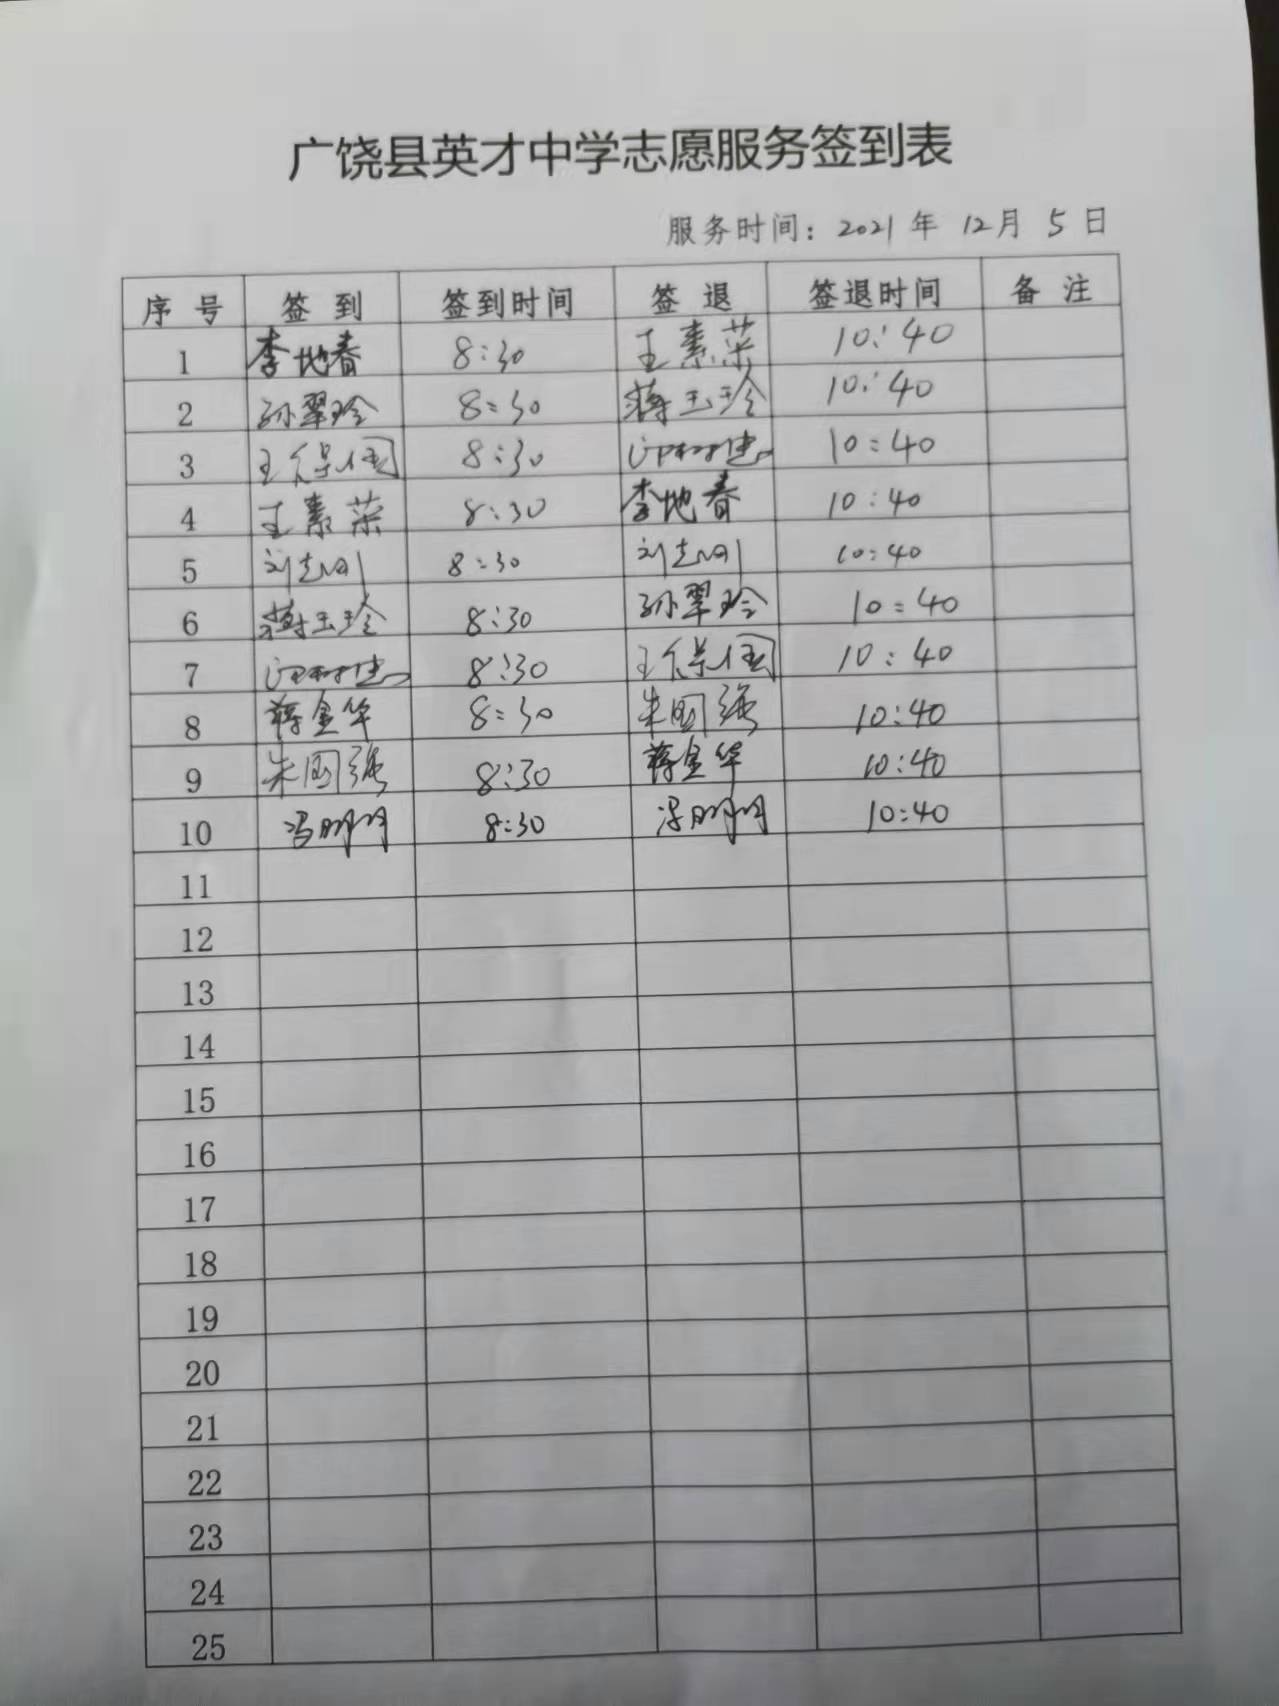 广饶县英才中学志愿服务签到表
服务时间：2021年 12月 5日
序号 签到 签到时间 签退 签退时间 备注
1 李地春 8:30 王素荣 10:40
2 孙翠玲 8:30 蒋玉珍 10:40
3 王保国 8:30 10:40
4 王素荣 8:30 李地春 10:40
5 刘志刚 8:30 刘志刚 10:40
6 蒋玉珍 8:30 孙翠玲 10:40
7 8:30 王保国 10:40
8 蒋金华 8:30 朱国强 10:40
9 朱国强 8:30 蒋金华 10:40
10 冯明明 8:30 冯明明 10:40
11
12
13
14
15
16
17
18
19
20
21
22
23
24
25